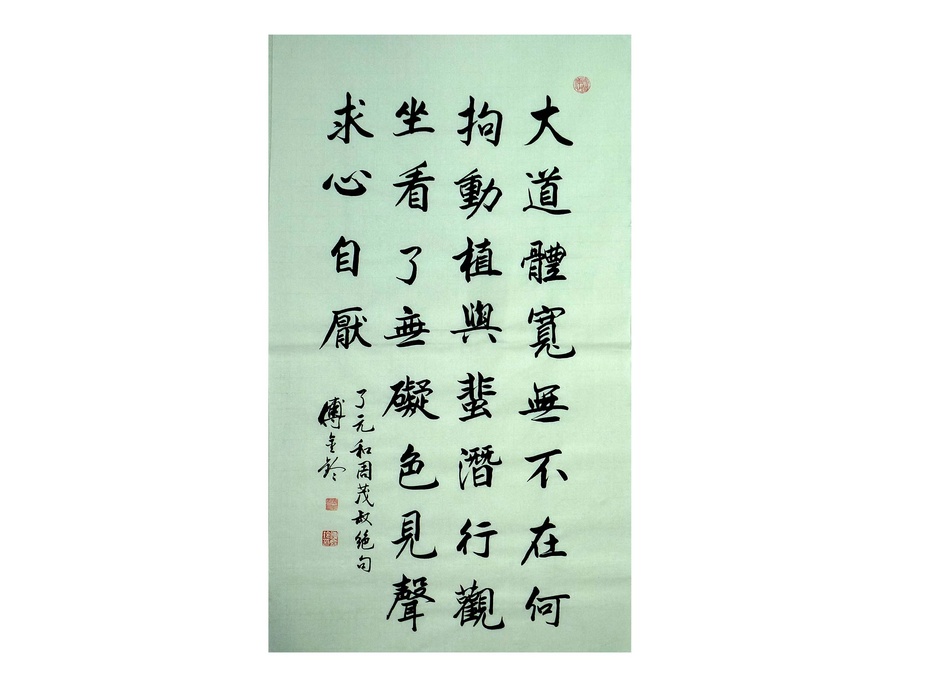 大道體寬無不在何
拘動植與蜚潛行觀
坐看了無礙色見聲
求心自厭
了元和周茂叔絶句
傅金齡